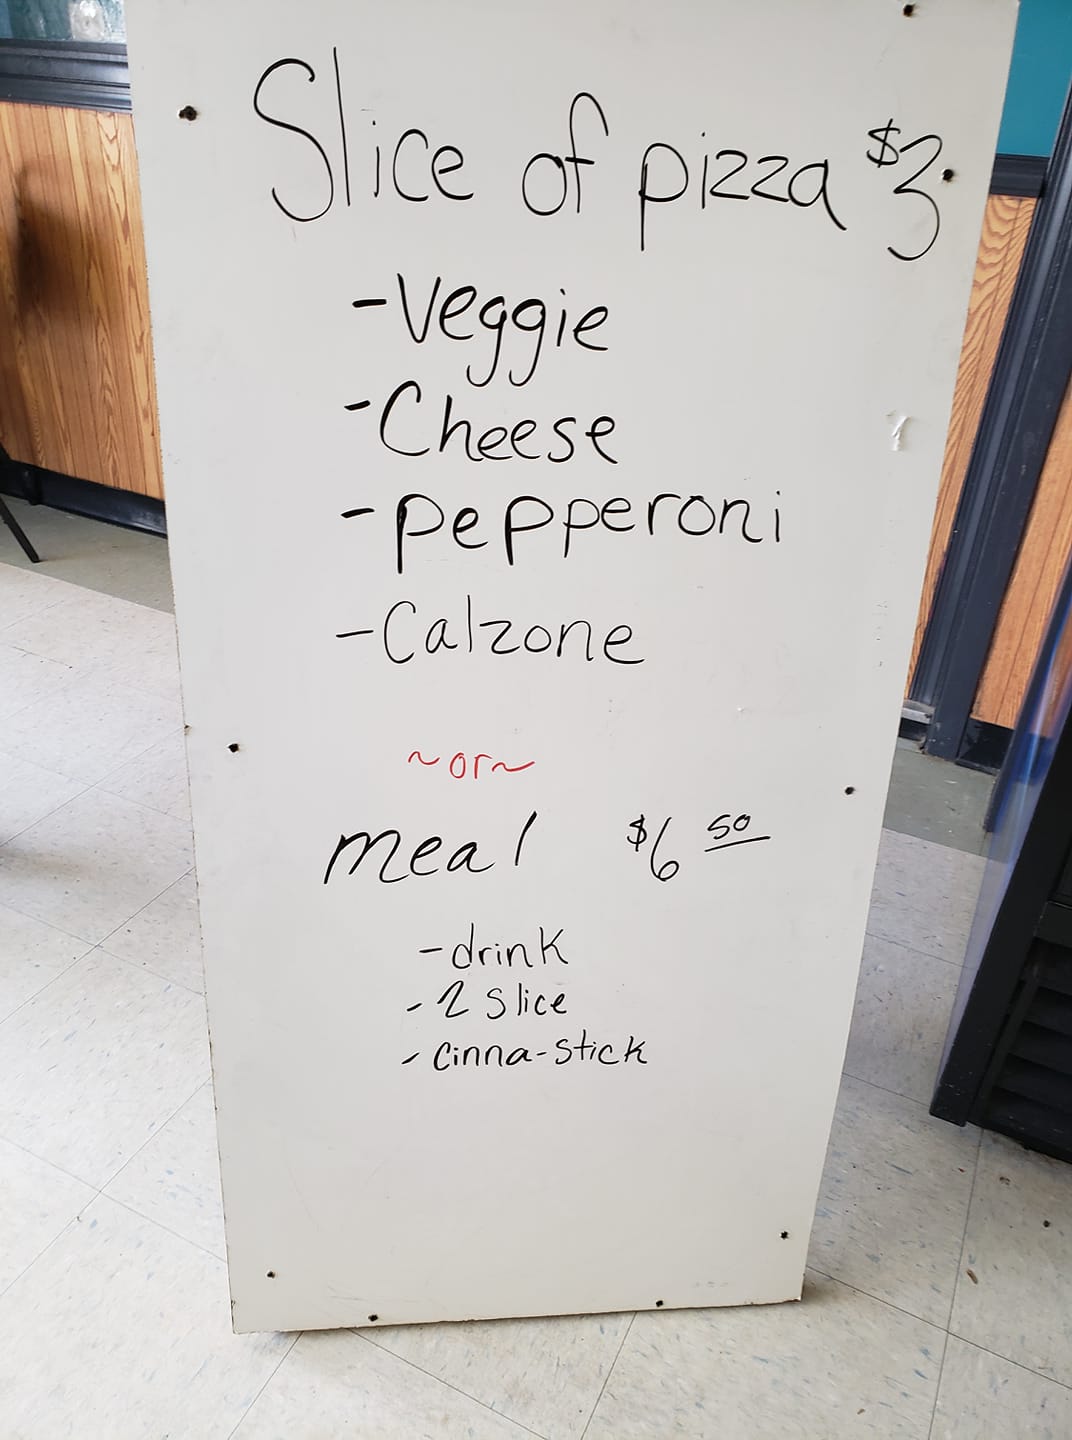 Slice of pizza $3
- Veggie
- Cheese
- Pepperoni
- Calzone
~or~
meal $6 50
- drink
- 2 slice
- cinna-stick